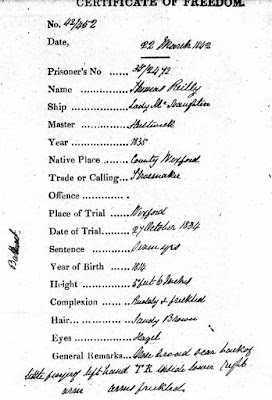 CERTIFICATE OF FREEDOM.
No. 42/452
Date, 22 March 1842
Prisoner's No ...... 35/2472
Name ........ Thomas Reilly
Ship ........ Lady McNaughten
Master ......
Year ........ 1835
Native Place ...... County Wexford
Trade or Calling... Shoemaker
Offence ......
Place of Trial ...... Wexford
Date of Trial...... 27 October 1834
Sentence ...... Seven yrs
Year of Birth ...... 1814
Height ...... 5 feet 6 Inches
Complexion ...... Ruddy & freckled
Hair ...... Sandy Brown
Eyes ...... Hazel
General Remarks... broad scar back of
little finger left hand T.R. inside lower right
arm arms freckled.
Bathurst